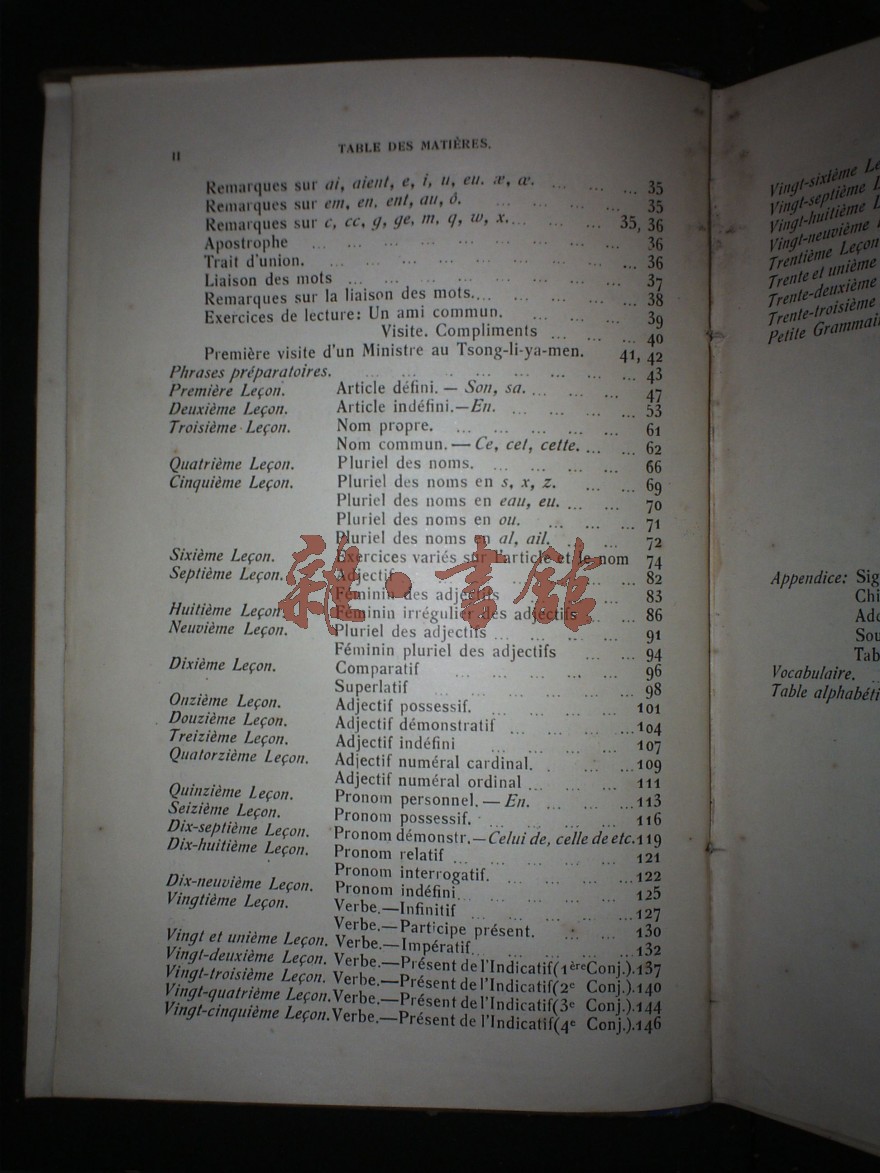 II
TABLE DES MATIÈRES.
Remarques sur ai, aient, e, i, u, eu. æ, œ. ... ... ... 35
Remarques sur em, en, ent, au, ô. ... ... ... ... 35
Remarques sur c, cc, g, ge, m, q, w, x.... ... ... 35, 36
Apostrophe ... ... ... ... ... ... ... ... 36
Trait d'union. ... ... ... ... ... ... ... ... 36
Liaison des mots ... ... ... ... ... ... ... 37
Remarques sur la liaison des mots.... ... ... ... ... 38
Exercices de lecture: Un ami commun. ... ... ... 39
Visite. Compliments ... ... ... 40
Première visite d'un Ministre au Tsong-li-ya-men. 41, 42
Phrases préparatoires. ... ... ... ... ... ... ... 43
Première Leçon. Article défini. — Son, sa. ... ... ... ... 47
Deuxième Leçon. Article indéfini.—En. ... ... ... ... 53
Troisième Leçon. Nom propre. ... ... ... ... ... 61
Nom commun. — Ce, cet, cette. ... ... 62
Quatrième Leçon. Pluriel des noms. ... ... ... ... 66
Cinquième Leçon. Pluriel des noms en s, x, z. ... ... 69
Pluriel des noms en eau, eu. ... ... 70
Pluriel des noms en ou. ... ... ... 71
Pluriel des noms en al, ail. ... ... 72
Sixième Leçon. Exercices variés sur l'article et le nom 74
Septième Leçon. Adjectif ... ... ... ... 82
Féminin des adjectifs ... ... ... 83
Huitième Leçon. Féminin irrégulier des adjectifs ... ... 86
Neuvième Leçon. Pluriel des adjectifs ... ... ... ... 91
Féminin pluriel des adjectifs ... ... 94
Dixième Leçon. Comparatif ... ... ... ... ... 96
Superlatif ... ... ... ... ... 98
Onzième Leçon. Adjectif possessif. ... ... ... ... 101
Douzième Leçon. Adjectif démonstratif ... ... ... ...104
Treizième Leçon. Adjectif indéfini ... ... ... ... 107
Quatorzième Leçon. Adjectif numéral cardinal. ... ... ...109
Adjectif numéral ordinal ... ... ... 111
Quinzième Leçon. Pronom personnel. — En. ... ... ...113
Seizième Leçon. Pronom possessif. ... ... ... ... 116
Dix-septième Leçon. Pronom démonstr.—Celui de, celle de etc.119
Dix-huitième Leçon. Pronom relatif ... ... ... ... 121
Pronom interrogatif. ... ... ... ...122
Dix-neuvième Leçon. Pronom indéfini... ... ... ... 125
Vingtième Leçon. Verbe.—Infinitif ... ... ... ...127
Verbe.—Participe présent. ... ... ...130
Vingt et unième Leçon. Verbe.—Impératif... ... ... ...132
Vingt-deuxième Leçon. Verbe.—Présent de l'Indicatif(1ère Conj.).137
Vingt-troisième Leçon. Verbe.—Présent de l'Indicatif(2e Conj.).140
Vingt-quatrième Leçon. Verbe.—Présent de l'Indicatif(3e Conj.).144
Vingt-cinquième Leçon. Verbe.—Présent de l'Indicatif(4e Conj.).146
雜·書館
Vingt-sixième
Vingt-septième
Vingt-huitième
Vingt-neuvième
Trentième Leçon
Trente et unième
Trente-deuxième
Trente-troisième
Petite
Appendice:
Vocabulaire. ..
Table